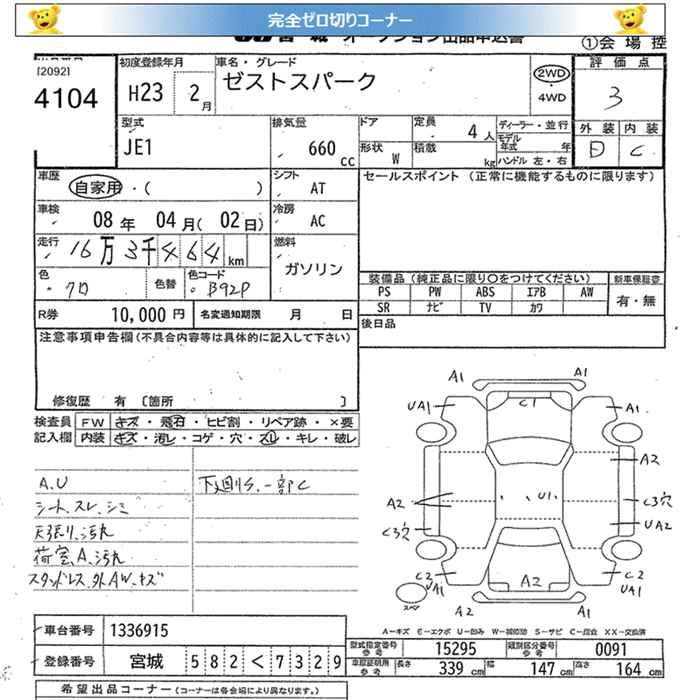 完全ゼロ切りコーナー
宮城 オークション出品申込書
①会場控
[2092]
4104
初度登録年月
H23 2月
車名・グレード
ゼストスパーク
2WD
・4WD
評価点
3
外装 内装
D C
型式
JE1
排気量
660 cc
ドア
形状 W
定員 4人
積載 kg
ディーラー・並行
モデル年式 年
ハンドル 左・右
車歴
自家用・( )
シフト
AT
セールスポイント (正常に機能するものに限ります)
車検
08年 04月(02日)
冷房
AC
走行
16万3千464km
燃料
ガソリン
色
クロ
色替
色コード
B92P
装備品(純正品に限り○をつけてください)
PS PW ABS エアB AW
SR ナビ TV カワ
新車保証書
有・無
R券 10,000円
名変通知期限 月 日
後日品
注意事項申告欄(不具合内容等は具体的に記入して下さい)
修復歴 有 [箇所 ]
検査員記入欄
FW キズ・飛石・ヒビ割・リペア跡・×要
内装 キズ・汚レ・コゲ・穴・スレ・キレ・破レ
A.U
シート.スレ.シミ
天張り.汚れ
荷室.A.汚れ
スタッドレス.外AW.キズ
下廻りS.一部C
A1 A1
UA1 C1 A1
A2
A2 U1 C3穴
C3穴 UA2
C2 UA1 A2 C2 UA1
スペア
A2 A1
A-キズ E-エクボ U-凹み W-補修跡 S-サビ C-腐食 XX-交換済
車台番号 1336915
登録番号 宮城 582く7329
型式指定番号参考 15295
類別区分番号参考 0091
車庫証明用参考 長さ 339cm 幅 147cm 高さ 164cm
希望出品コーナー(コーナーは各会場により異なります。)